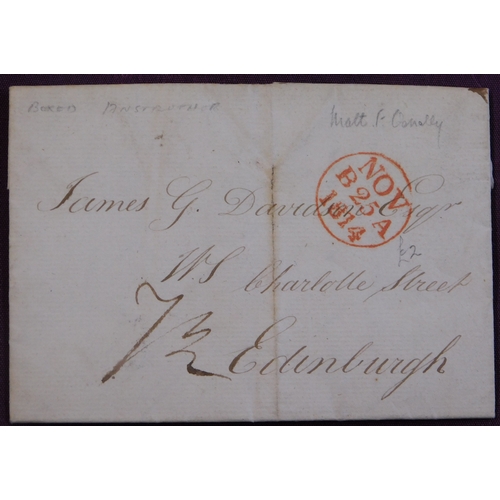 BOXED ANSTRUTHER
Matt &
James G. Davidson Esqr
NOV
B 25 A
1814
£2
W.S
Charlotte Street
7½
Edinburgh